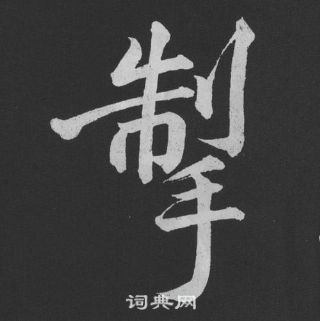 掣
词典网